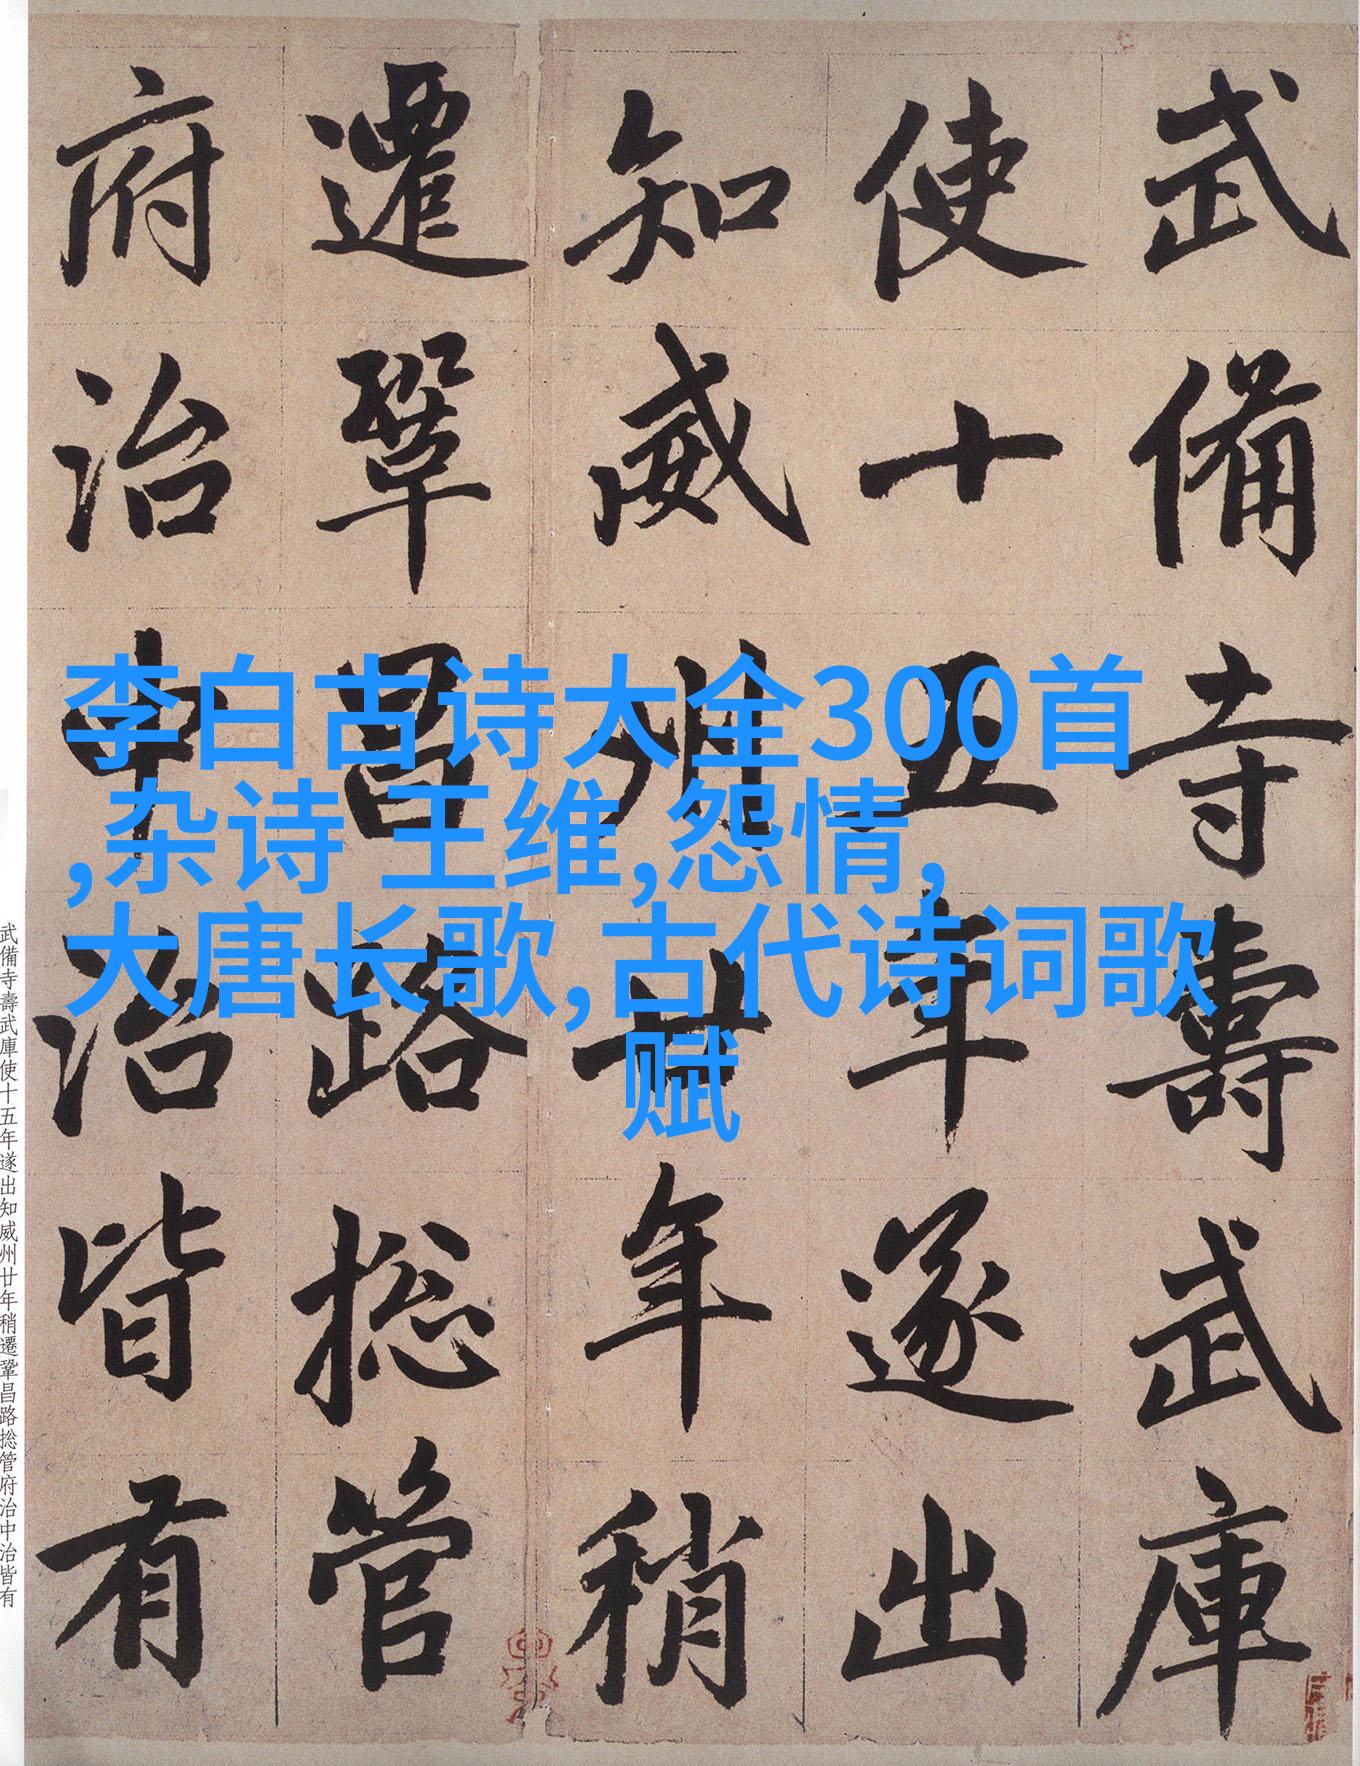 武備寺壽武庫
使十五年遂出
知威州廿年稍
遷鞏昌路捴管
府治中治皆有
李白古诗大全300首
,杂诗 王维,怨情,
大唐长歌,古代诗词歌
赋
武備寺壽武庫使十五年遂出知威州廿年稍遷鞏昌路捴管府治中治皆有